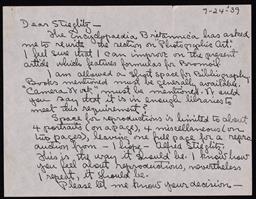 7-24-39
Dear Stieglitz -
The Encyclopaedia Britannica has asked
me to rewrite the "section on Photographic Art".
I feel sure that I can improve on the present
article which features formulas for Bromoil
I am allowed a short space for Bibliography
Books mentioned must be generally available.
"Camera Work" must be mentioned. Would
you say that it is in enough libraries to
meet this requirement?
Space for reproductions is limited to about
4 portraits (on a page), 4 miscellaneous (on
two pages), leaving one full page for a repro-
duction from - I hope - Alfred Stieglitz.
This is the way it should be. I know how
you feel about reproductions, nevertheless
I repeat, it should be.
Please let me know your decision -